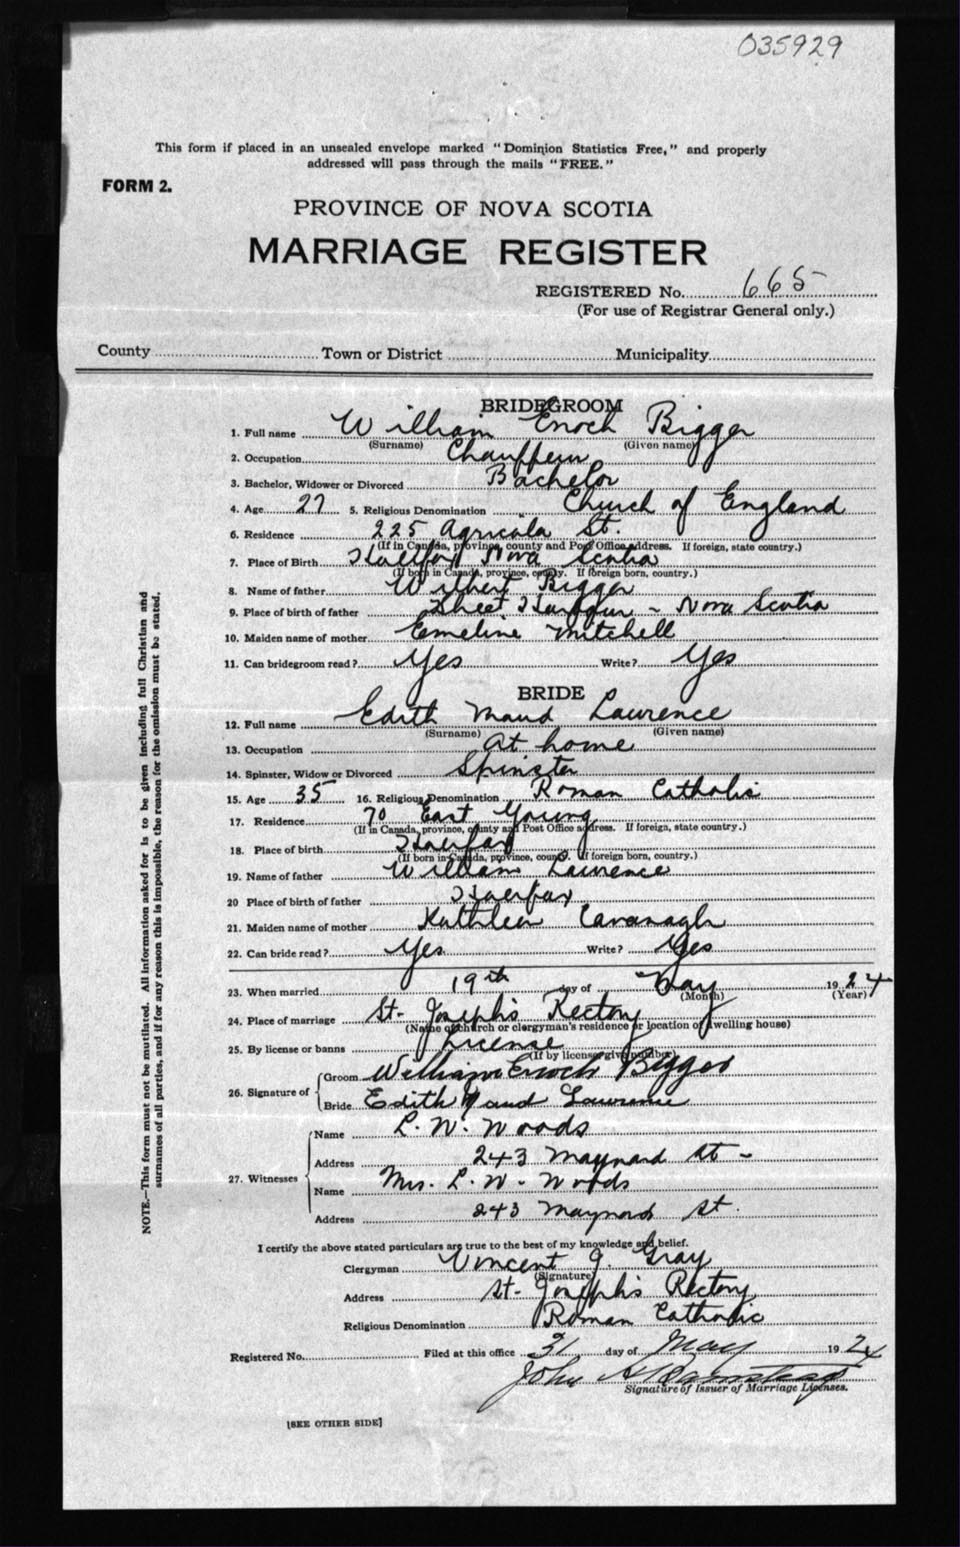 035929
This form if placed in an unsealed envelope marked "Dominion Statistics Free," and properly
addressed will pass through the mails "FREE."
FORM 2.
PROVINCE OF NOVA SCOTIA
MARRIAGE REGISTER
REGISTERED No. 665
(For use of Registrar General only.)
County Town or District Municipality
BRIDEGROOM
1. Full name William Enoch Bigger
(Surname) (Given name)
2. Occupation Chauffeur
3. Bachelor, Widower or Divorced Bachelor
4. Age 27 5. Religious Denomination Church of England
6. Residence 225 Agricola St.
(If in Canada, province, county and Post Office address. If foreign, state country.)
7. Place of Birth Halifax Nova Scotia
(If born in Canada, province, county. If foreign born, country.)
8. Name of father Wilbert Bigger
9. Place of birth of father Sheet Harbour - Nova Scotia
10. Maiden name of mother Emeline Mitchell
11. Can bridegroom read? Yes Write? Yes
BRIDE
12. Full name Edith Maud Lawrence
(Surname) (Given name)
13. Occupation At home
14. Spinster, Widow or Divorced Spinster
15. Age 35 16. Religious Denomination Roman Catholic
17. Residence 70 East Young
(If in Canada, province, county and Post Office address. If foreign, state country.)
18. Place of birth Halifax
(If born in Canada, province, county. If foreign born, country.)
19. Name of father William Lawrence
20 Place of birth of father Halifax
21. Maiden name of mother Kathleen Cavanagh
22. Can bride read? Yes Write? Yes
23. When married 19th day of May 1924
(Month) (Year)
24. Place of marriage St. Joseph's Rectory
(Name of church or clergyman's residence or location of dwelling house)
25. By license or banns License
(If by license give number)
26. Signature of Groom William Enoch Bigger
Bride Edith Maud Lawrence
27. Witnesses Name L. W. Woods
Address 243 Maynard St -
Name Mrs. L. W. Woods
Address 243 Maynard St.
I certify the above stated particulars are true to the best of my knowledge and belief.
Clergyman Vincent J. Gray
(Signature)
Address St. Joseph's Rectory
Religious Denomination Roman Catholic
Registered No. Filed at this office 31 day of May 1924
John
Signature of Issuer of Marriage Licenses.
[SEE OTHER SIDE]
NOTE.—This form must not be mutilated. All information asked for is to be given including full Christian and
surnames of all parties, and if for any reason this is impossible, the reason for the omission must be stated.